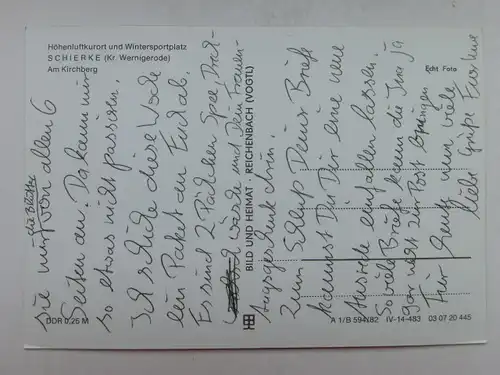 Höhenluftkurort und Wintersportplatz
SCHIERKE (Kr. Wernigerode)
Am Kirchberg
Echt Foto
die Bücher
sie nur von allen 6
Seiten an. Da kann mir
so etwas nicht passieren.
Ich schicke diese Woche
ein Paket an Euch ab.
Es sind 2 Päckchen Spee, Dreck-
Wäsche und dein Frauen-
tagsgeschenk drin.
Zum Schluß Deiner Briefe
kannst Du Dir eine neue
Ausrede einfallen lassen.
So viele Briefe kann die Ines ja
gar nicht zur Post bringen
Für heute nun viele
liebe Grüße Eure
BILD UND HEIMAT · REICHENBACH (VOGTL)
DDR 0,25 M
A 1/B 594/82 IV-14-483 03 07 20 445